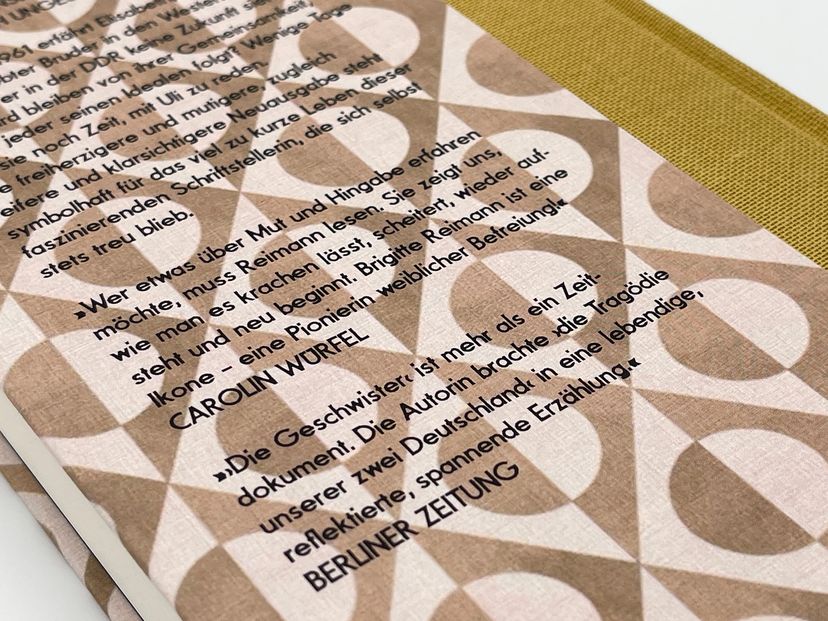 UNGE
961 erfährt Elisabeth
bter Bruder in den Westen
er in der DDR keine Zukunft
rd bleiben von ihrer Gemeinsamkeit,
jeder seinen Idealen folgt? Wenige Tage
sie noch Zeit, mit Uli zu reden.
e freiherzigere und mutigere, zugleich
eifere und klarsichtigere Neuausgabe steht
symbolhaft für das viel zu kurze Leben dieser
faszinierenden Schriftstellerin, die sich selbst
stets treu blieb.
»Wer etwas über Mut und Hingabe erfahren
möchte, muss Reimann lesen. Sie zeigt uns,
wie man es krachen lässt, scheitert, wieder auf-
steht und neu beginnt. Brigitte Reimann ist eine
Ikone – eine Pionierin weiblicher Befreiung!«
CAROLIN WÜRFEL
»›Die Geschwister‹ ist mehr als ein Zeit-
dokument. Die Autorin brachte ›die Tragödie
unserer zwei Deutschland‹ in eine lebendige,
reflektierte, spannende Erzählung.«
BERLINER ZEITUNG